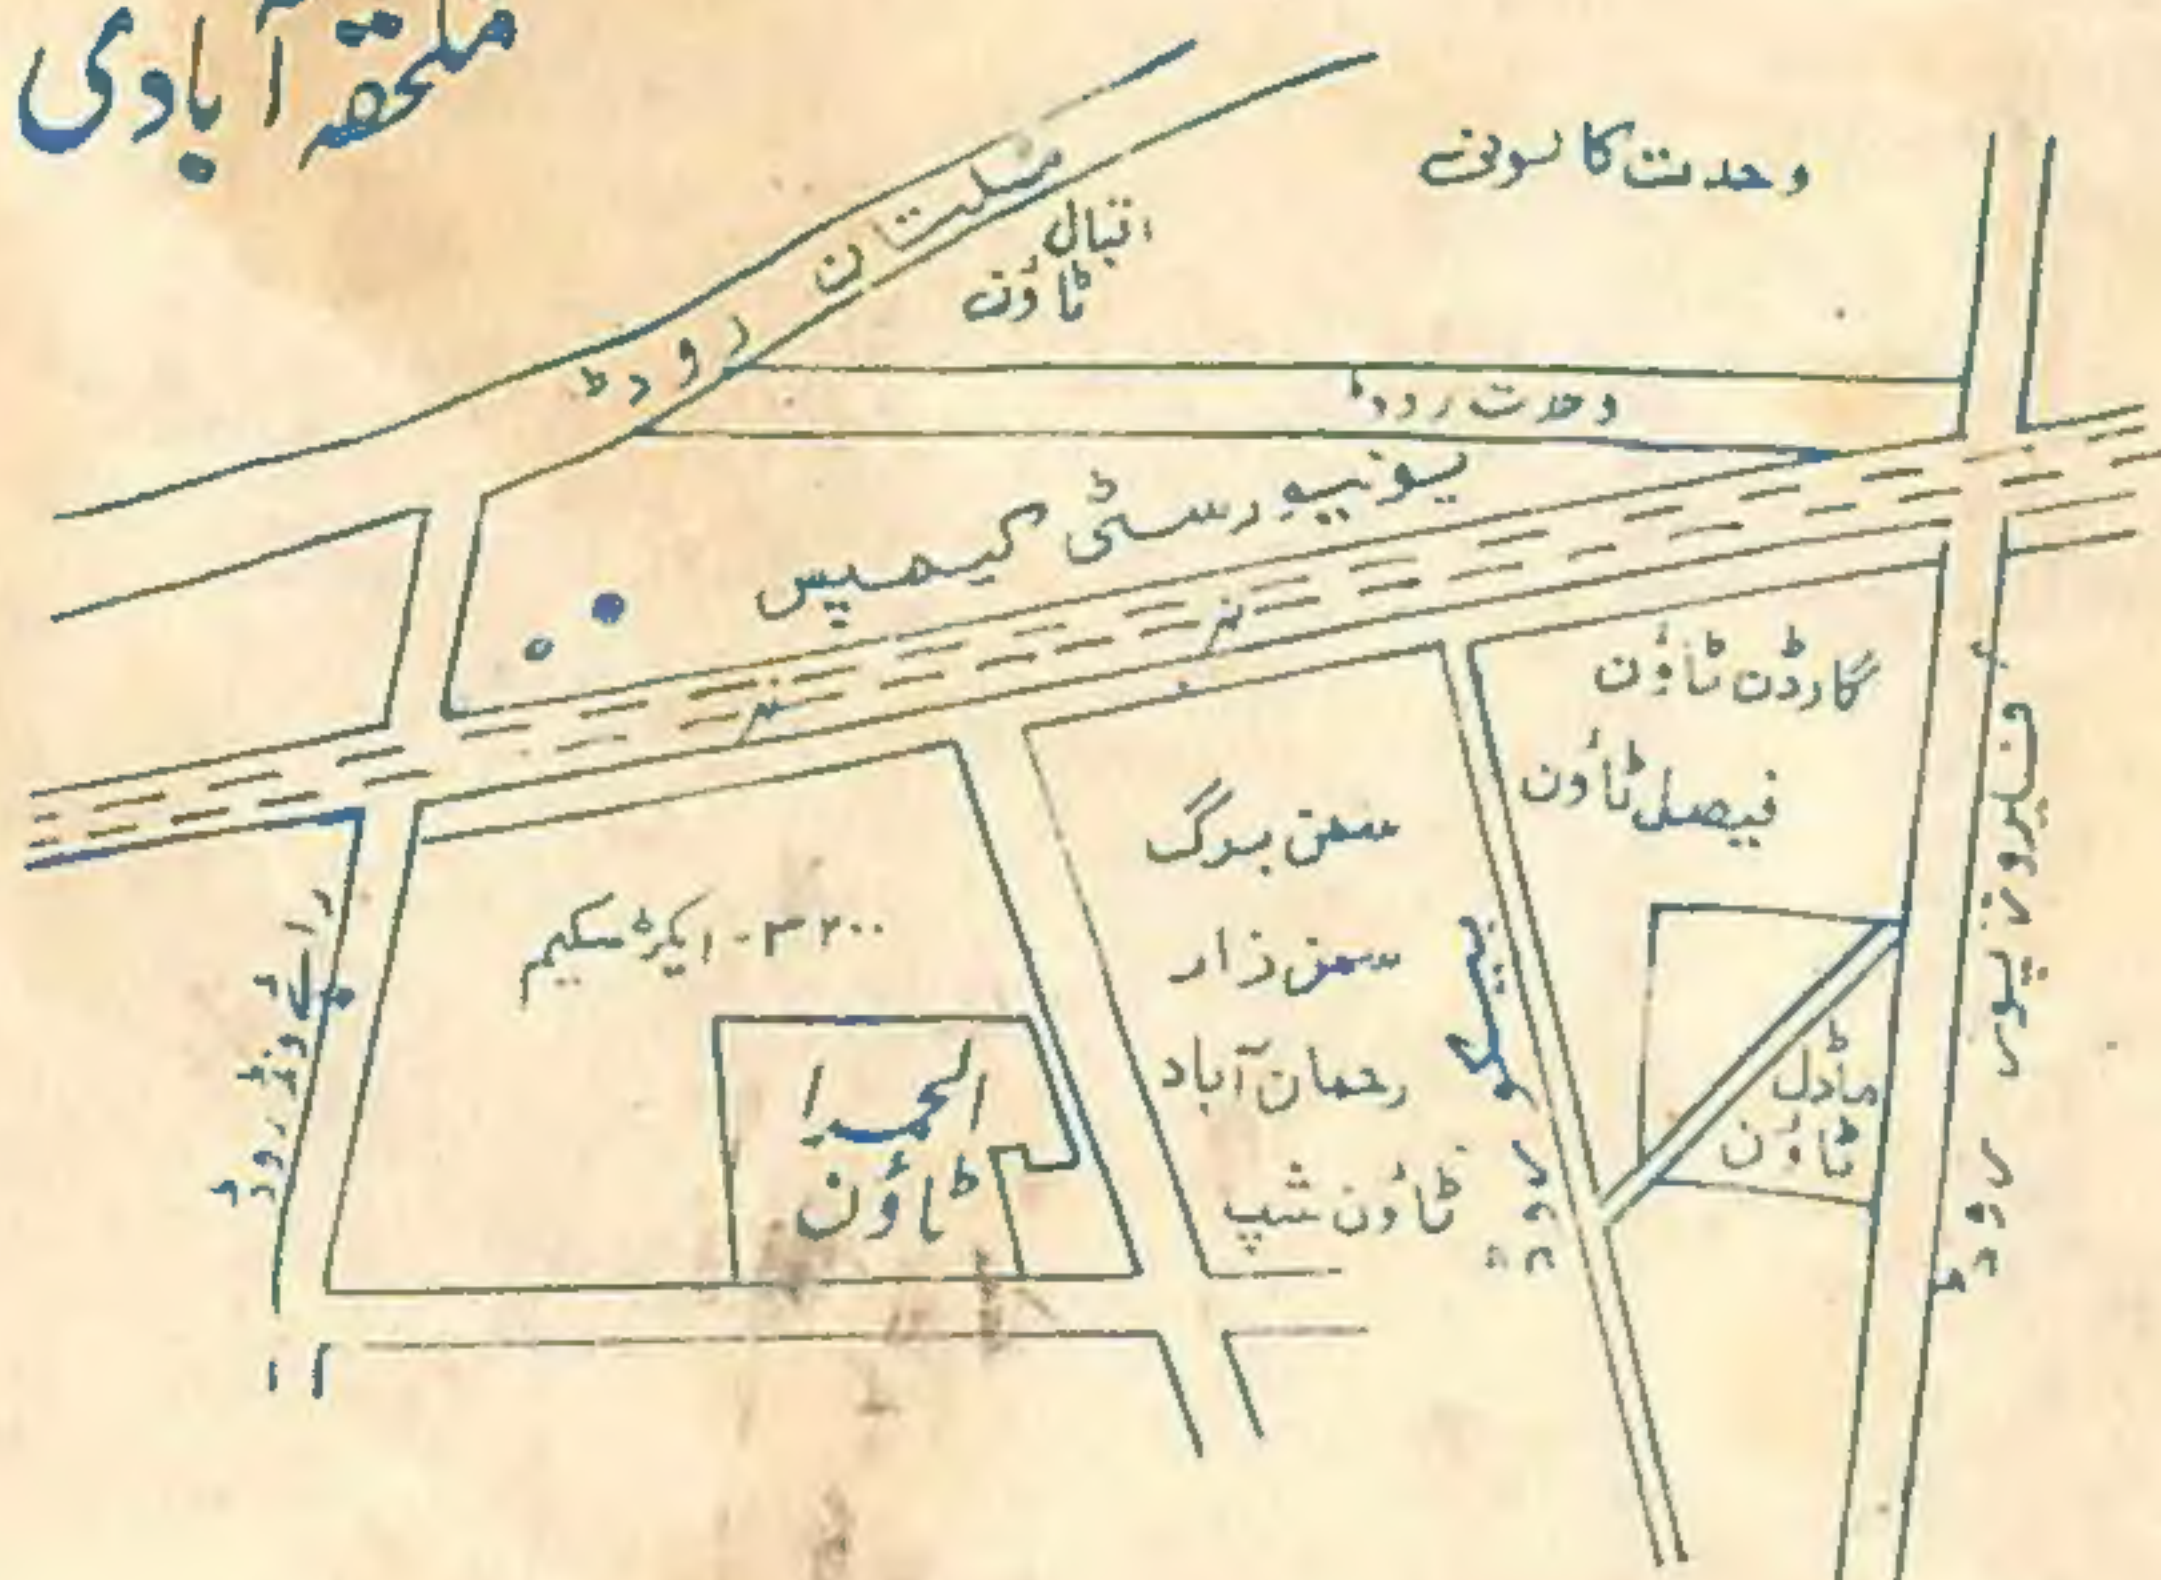 ملحقہ آبادی
وحدت کالونی
ملتان روڈ
اقبال
ٹاؤن
وحدت روڈ
یونیورسٹی کیمپس
نہر
نہر
گارڈن ٹاؤن
فیصل ٹاؤن
فیروز پور روڈ
سمن برگ
سمن زار
رحمان آباد
ٹاؤن شپ
پیکو روڈ
ماڈل
ٹاؤن
۳۲۰۰ - ایکڑ سکیم
الحمرا
ٹاؤن
رائے ونڈ روڈ